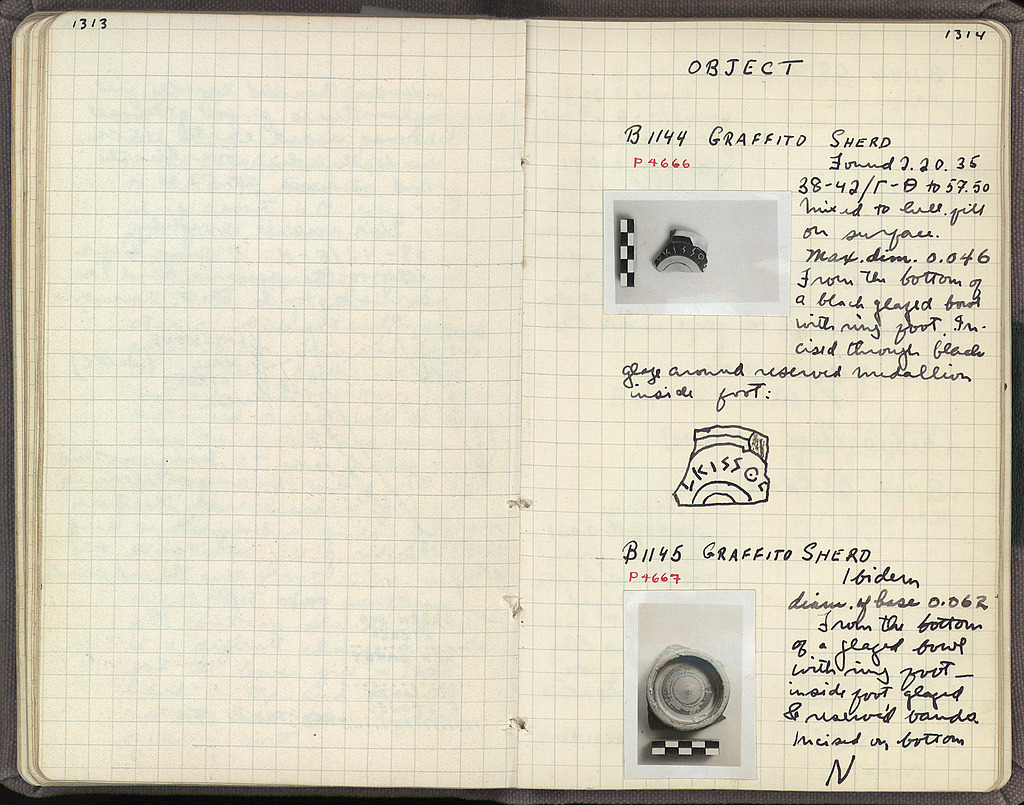 1313
1314
OBJECT
B1144 GRAFFITO SHERD
P 4666
Found 2.20.35
38-42/Γ-Θ to 57.50
Mixed to hell. fill
on surface.
Max. dim. 0.046
From the bottom of
a black glazed bowl
with ring foot. In-
cised through black
glaze around reserved medallion
inside foot:
KISSO
B1145 GRAFFITO SHERD
P 4667
Ibidem
diam. of base 0.062
From the bottom
of a glazed bowl
with ring foot—
inside foot glazed
& reserved bands
Incised on bottom
N